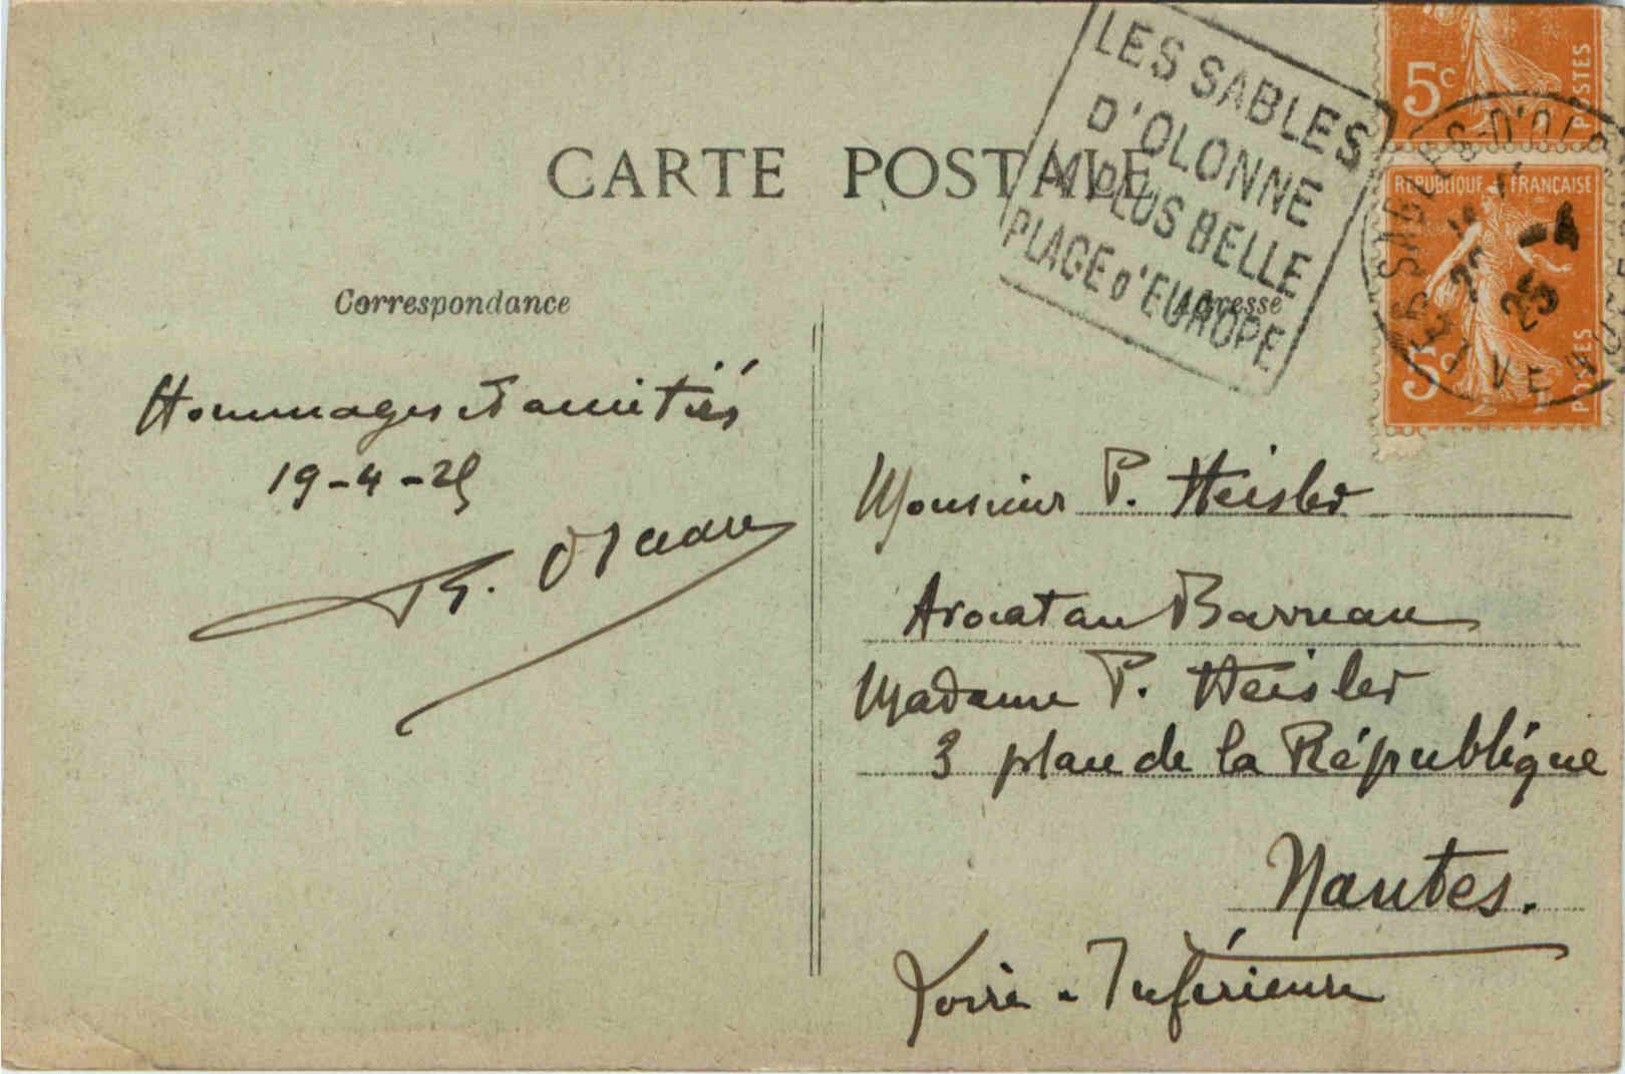 CARTE POSTALE
LES SABLES
D'OLONNE
LA PLUS BELLE
PLAGE D'EUROPE
5c
POSTES
REPUBLIQUE FRANÇAISE
5c
POSTES
Correspondance
Adresse
Hommages et amitiés
19-4-25
Monsieur P. Heisler
Avocat au Barreau
Madame P. Heisler
3 place de la République
Nantes.
Loire-Inférieure